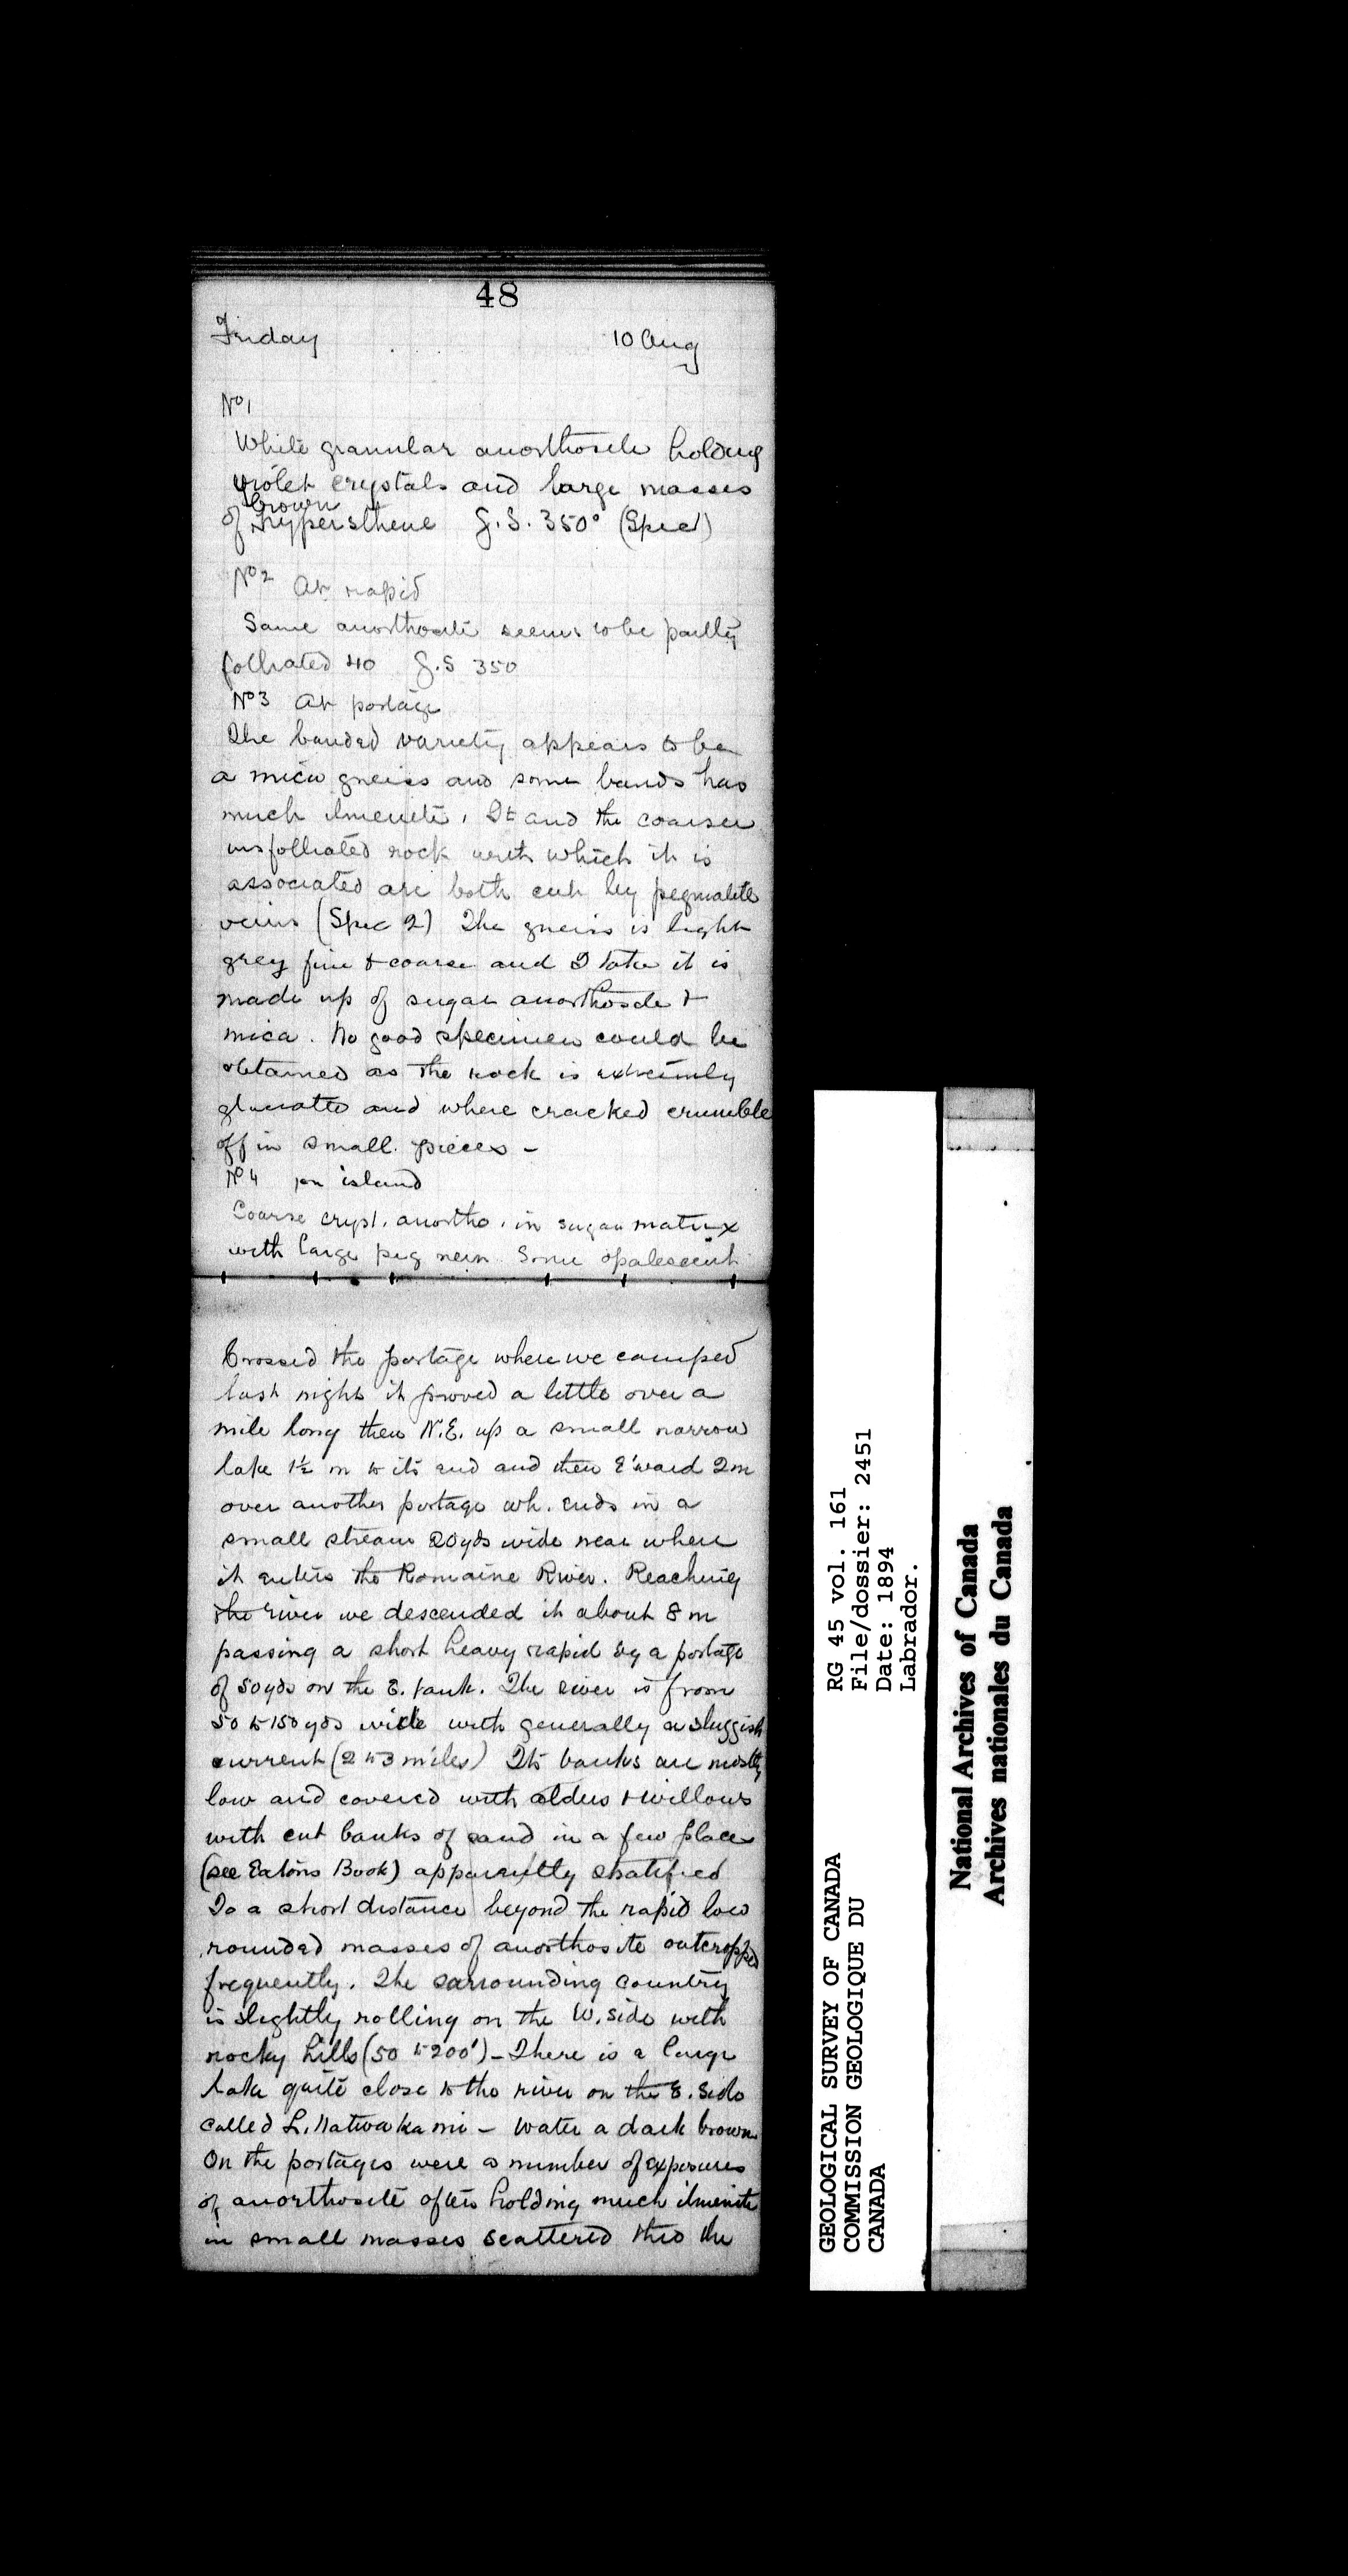 48
Friday 10 Aug
No 1
White granular anorthosite holding
violet crystals and large masses
brown
of Hypersthene G.S. 350° (Spec)
No 2 At rapid
Same anorthosite seems to be partly
folliated 40 G.S 350
No 3 At portage
The banded variety appears to be
a mica gneiss and some bands has
much ilmenite, It and the coarser
unfolliated rock with which it is
associated are both cut by pegmatite
veins (Spec 2) The gneiss is light
grey fine & coarse and I take it is
made up of sugar anorthosite &
mica. No good specimen could be
obtained as the rock is extremely
and where cracked crumble
off in small pieces -
No 4 on island
Coarse cryst. anortho. in sugar matrix
with large peg vein Some opalescent
Crossed the portage where we camped
last night it proved a little over a
mile long then N.E. up a small narrow
lake 1½ m to its end and then E'ward 2m
over another portage wh. ends in a
small stream 20yds wide near where
it enters the Romaine River. Reaching
the river we descended it about 8 m
passing a short heavy rapid by a portage
of 50yds on the E. bank. The river is from
50 to 150 yds wide with generally a sluggish
current (2 to 3 miles) Its banks are mostly
low and covered with alders & willows
with cut banks of sand in a few places
(see Eatons Book) apparently stratified
To a short distance beyond the rapid low
rounded masses of anorthosite outcropped
frequently. The sarrounding country
is slightly rolling on the W. side with
rocky hills (50 to 200') - There is a large
lake quite close to the river on the E. side
called L. Natwakami - Water a dark brown
On the portages were a number of exposures
of anorthosite often holding much ilmenite
in small masses scattered thro the
GEOLOGICAL SURVEY OF CANADA
COMMISSION GEOLOGIQUE DU
CANADA
RG 45 vol. 161
File/dossier: 2451
Date: 1894
Labrador.
National Archives of Canada
Archives nationales du Canada